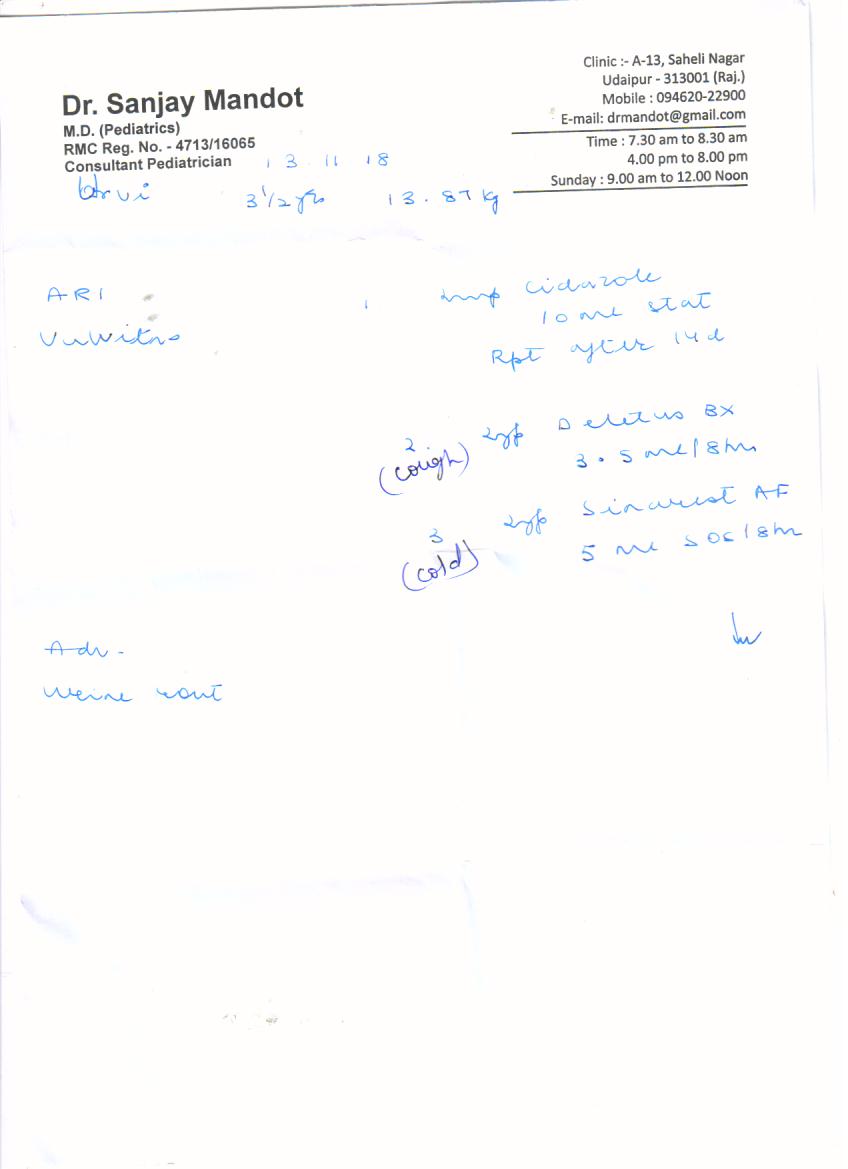 Dr. Sanjay Mandot
M.D. (Pediatrics)
RMC Reg. No. - 4713/16065
Consultant Pediatrician
Clinic :- A-13, Saheli Nagar
Udaipur - 313001 (Raj.)
Mobile : 094620-22900
E-mail: drmandot@gmail.com
Time : 7.30 am to 8.30 am
4.00 pm to 8.00 pm
Sunday : 9.00 am to 12.00 Noon
13.11.18
Urvi 3 1/2 yrs 13.87 kg
ARI
1 Cidazole
10 ml stat
Rpt after 14 d
2 syp Deletus BX
(cough) 3.5 ml/8hr
3 syp Sinarest AF
(cold) 5 ml SOS/8hr
Adv -
Urine rout